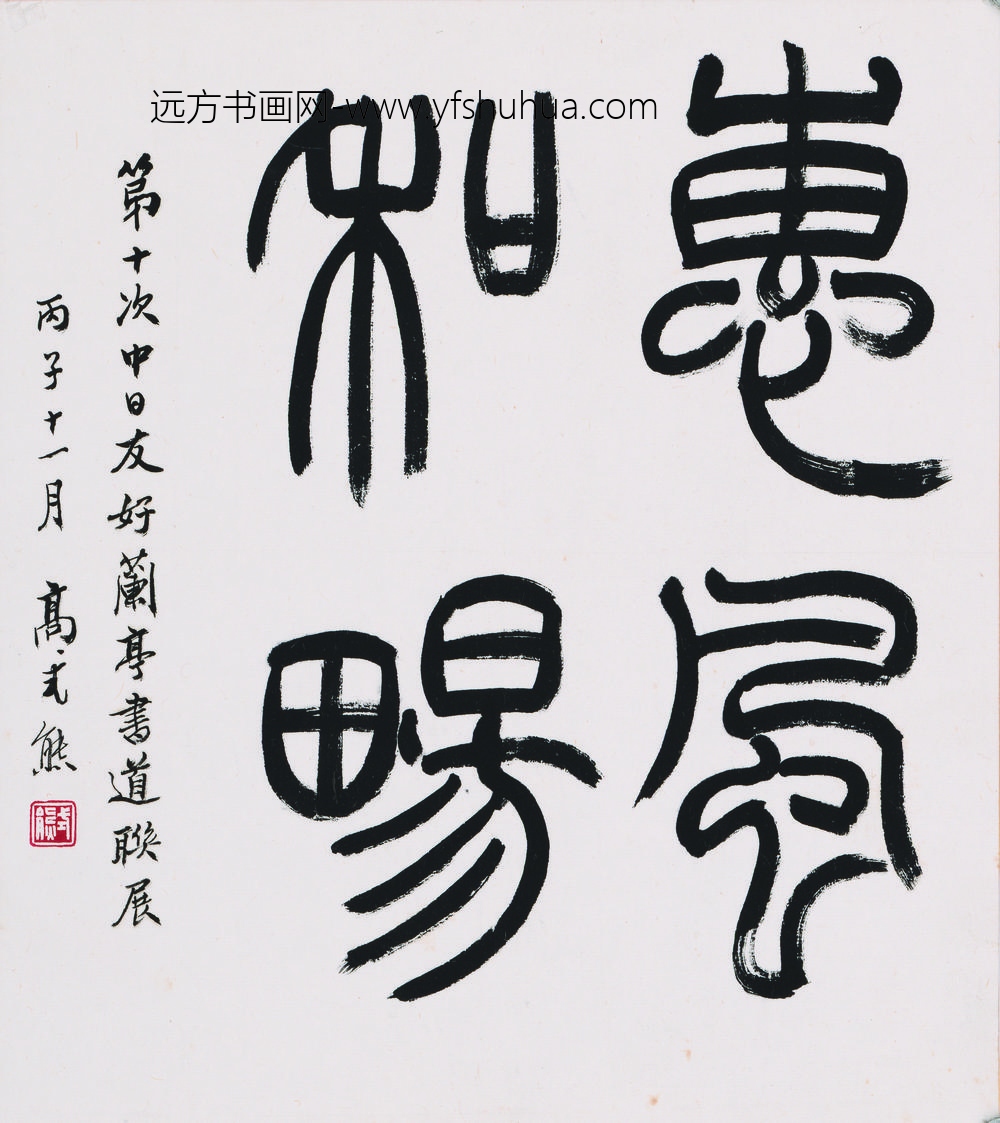 惠風
和暢
第十次中日友好蘭亭書道聯展
丙子十一月 高式熊
式熊
远方书画网-www.yfshuhua.com